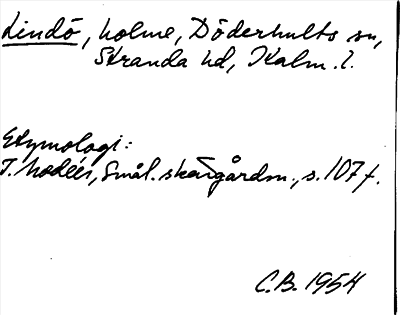 Lindö, holme, Döderhults sn,
Stranda hd, Kalm. l.
Etymologi:
T. Modéer, Smål. skärgårdn., s. 107 f.
C.B. 1954